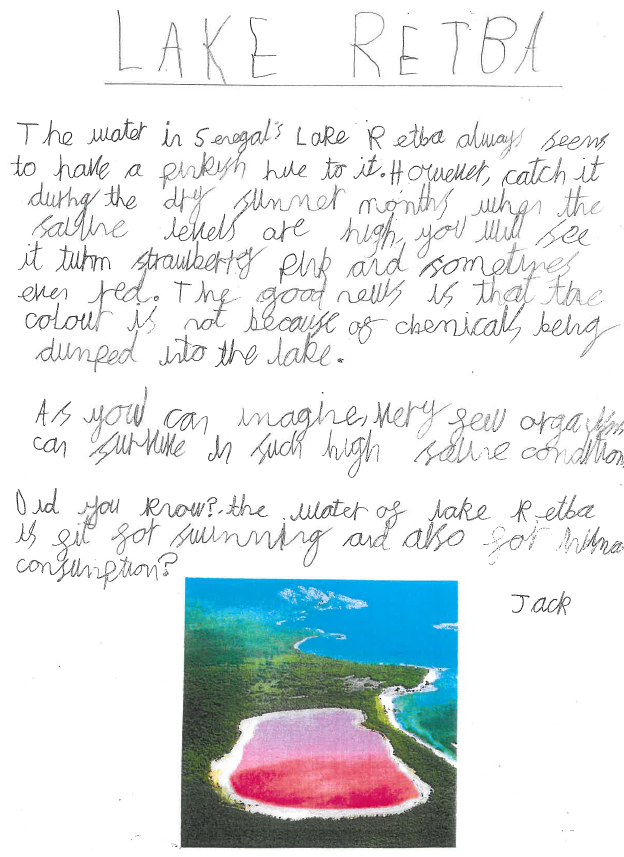 LAKE RETBA
The water in Senegal's Lake Retba always seems
to have a pinkish hue to it. However, catch it
during the dry summer months when the
saline levels are high, you will see
it turn strawberry pink and sometimes
even red. The good news is that the
colour is not because of chemicals being
dumped into the lake.
As you can imagine, very few organisms
can survive in such high saline conditions
Did you know? the water of lake Retba
is fit for swimming and also for human
consumption?
Jack